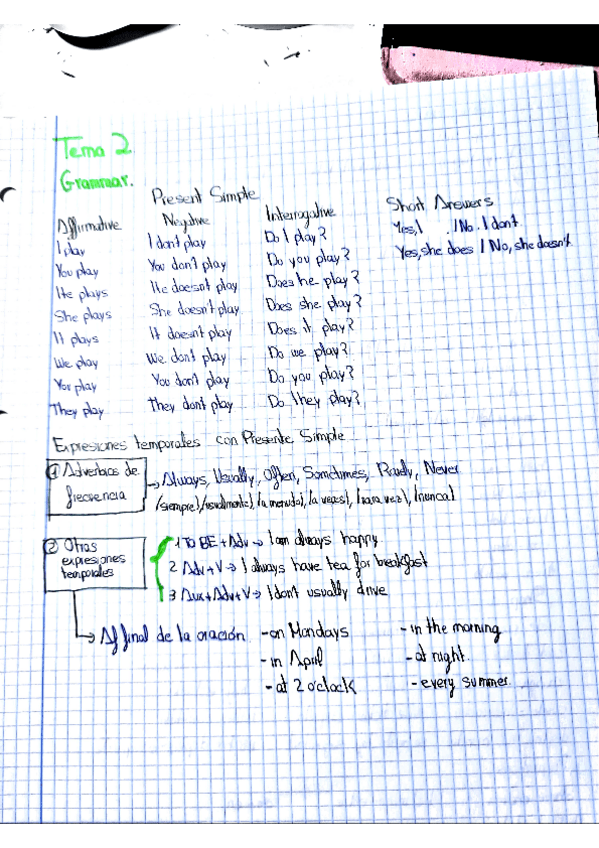 Tema 2
Grammar.
Present Simple
Affirmative Negative Interrogative Short Answers
I play I dont play Do I play? Yes, I . / No. I dont.
You play You don't play Do you play? Yes, she does / No, she doesn't
He plays He doesn't play Does he play?
She plays She doesn't play Does she play?
It plays It doesnt play Does it play?
We play We dont play Do we play?
You play You don't play Do you play?
They play They dont play Do they play?
Expresiones temporales con Presente Simple
① Adverbios de frecuencia → Always, Usually, Often, Sometimes, Rarely, Never
(siempre), (usualmente), (a menudo), (a veces), (rara vez), (nunca)
② Otras expresiones temporales
1 TO BE + Adv → I am always happy
2 Adv + V → I always have tea for breakfast
3 Aux + Adv + V → I dont usually drive
→ Al final de la oración - on Mondays - in the morning
- in April - at night.
- at 2 o'clock - every summer.